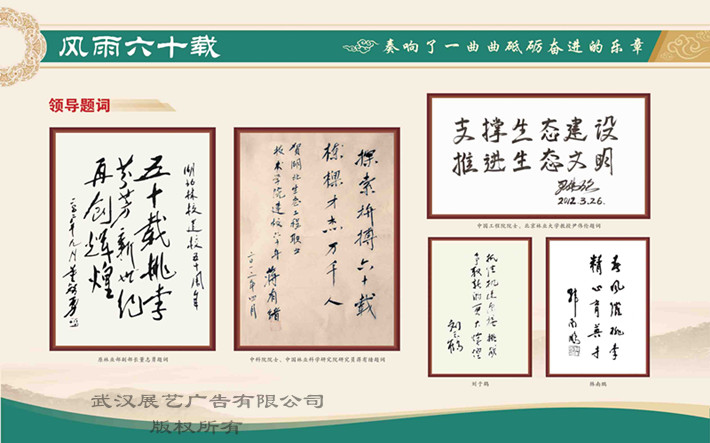 风雨六十载
奏响了一曲曲砥砺奋进的乐章
领导题词
湖北林校建校五十周年
五十载桃李
芬芳新世纪
再创辉煌
二〇〇二年九月
原林业部副部长董志勇题词
探索拼搏六十载
栋樑才杰万千人
贺湖北生态工程职业
技术学院建校六十年
蒋有绪
二〇一二年四月
中科院院士、中国林业科学研究院研究员蒋有绪题词
支撑生态建设
推进生态文明
尹伟伦
2012.3.26.
中国工程院院士、北京林业大学教授尹伟伦题词
刘于鹤
春风润桃李
精心育英才
韩南鹏
武汉展艺广告有限公司
版权所有